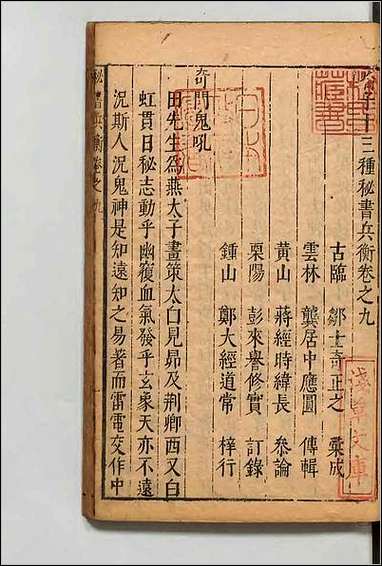 孫子十三種秘書兵衡卷之九
古臨 鄒士奇正之 彙成
雲林 龔居中應圓 傳輯
黃山 蔣經時緯長 叅論
栗陽 彭來譽修實 訂錄
鍾山 鄭大經道常 梓行
奇門鬼吼
田先生為燕太子畫策太白見昴及荆卿西又白
虹貫日秘志動乎幽覆血氣發乎玄象天亦不遠
況斯人況鬼神是知遠知之易著而雷電交作中
秘書兵衡卷之九
淺草文庫